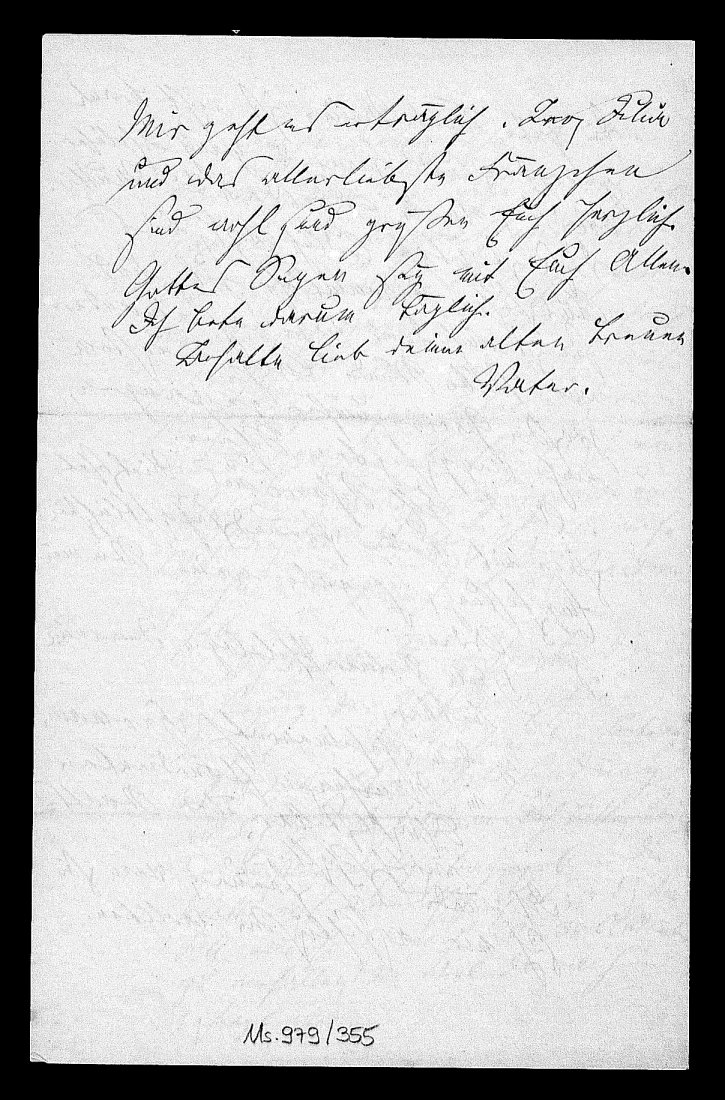 Mir geht es erträglich.
und das allerliebste Fränzchen
sind wohl und grüßen Euch herzlich.
Gottes Segen sey mit Euch Allen.
Ich bete darum täglich.
Behalte lieb deinen alten treuen
Vater.
Ms. 979/355